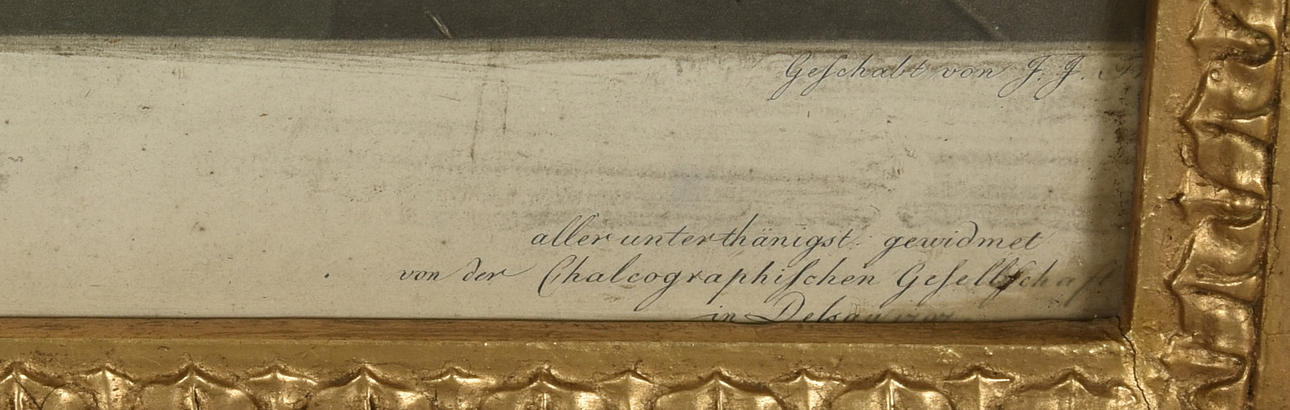 Geſchabt von J. J.
allerunterthänigst gewidmet
von der Chalcographiſchen Geſellſchaft
in Deſsau